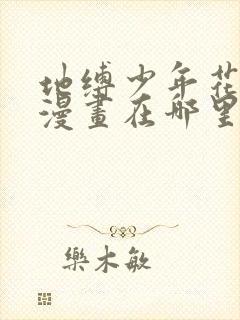 地缚少年花
漫畫在哪里
樂木敏